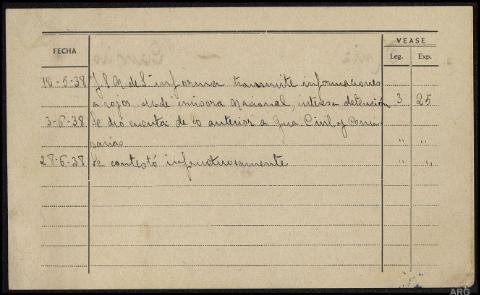 VEASE
FECHA Leg. Exp.
18-5-38 J.S.M. de S- informa transmite informaciones
a rojos desde emisora nacional interesa detención 3 25
3-6-38 Se dió cuenta de lo anterior a Gua. Civil y Comi
sarias " "
28-6-38 se contestó infructuosamente " "
ARG